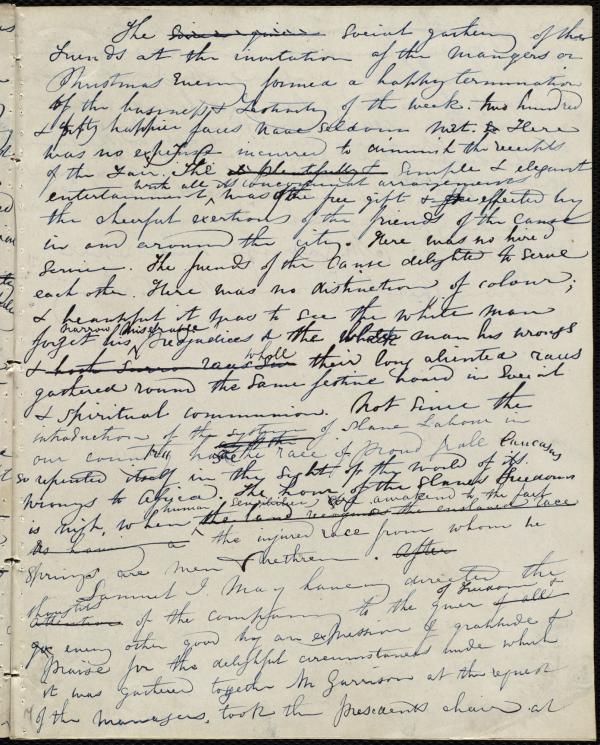 The social gathering of the
Friends at the invitation of the Mangers on
Christmas Evening formed a happy termination
of the business & festivity of the week. two hundred
& fifty happier faces have seldom met. Here
was no expense incurred to diminish the receipts
of the Fair. The simple & elegant
entertainment with all its arrangements
was the free gift & effected by
the cheerful exertions of the friends of the Cause
in and around the city. Here was no hired
Service. The friends of the Cause delighted to serve
each other. Here was no distinction of colour;
& beautiful it was to see the white man
forget his narrow miserable prejudices & the black man his wrongs
& while their long aliented races
gathered round the same festive board in Social
& Spiritual communion. Not since the
introduction of the system of Slave Labour in
our country has the race of proud pale Caucasus
so repented itself in the sight of the world of its
wrongs to Africa. The hour of the Slaves freedom
is nigh, when human awakend to the fact
the injured race from whom he
Springs are men & brethren. After
Samuel J. May having directed the
thoughts of the company to the giver of freedom &
every other good by an expression of gratitude &
praise for the delightful circumstances under which
it was gathered together Mr Garrison at the request
of the managers, took the presedents chair at